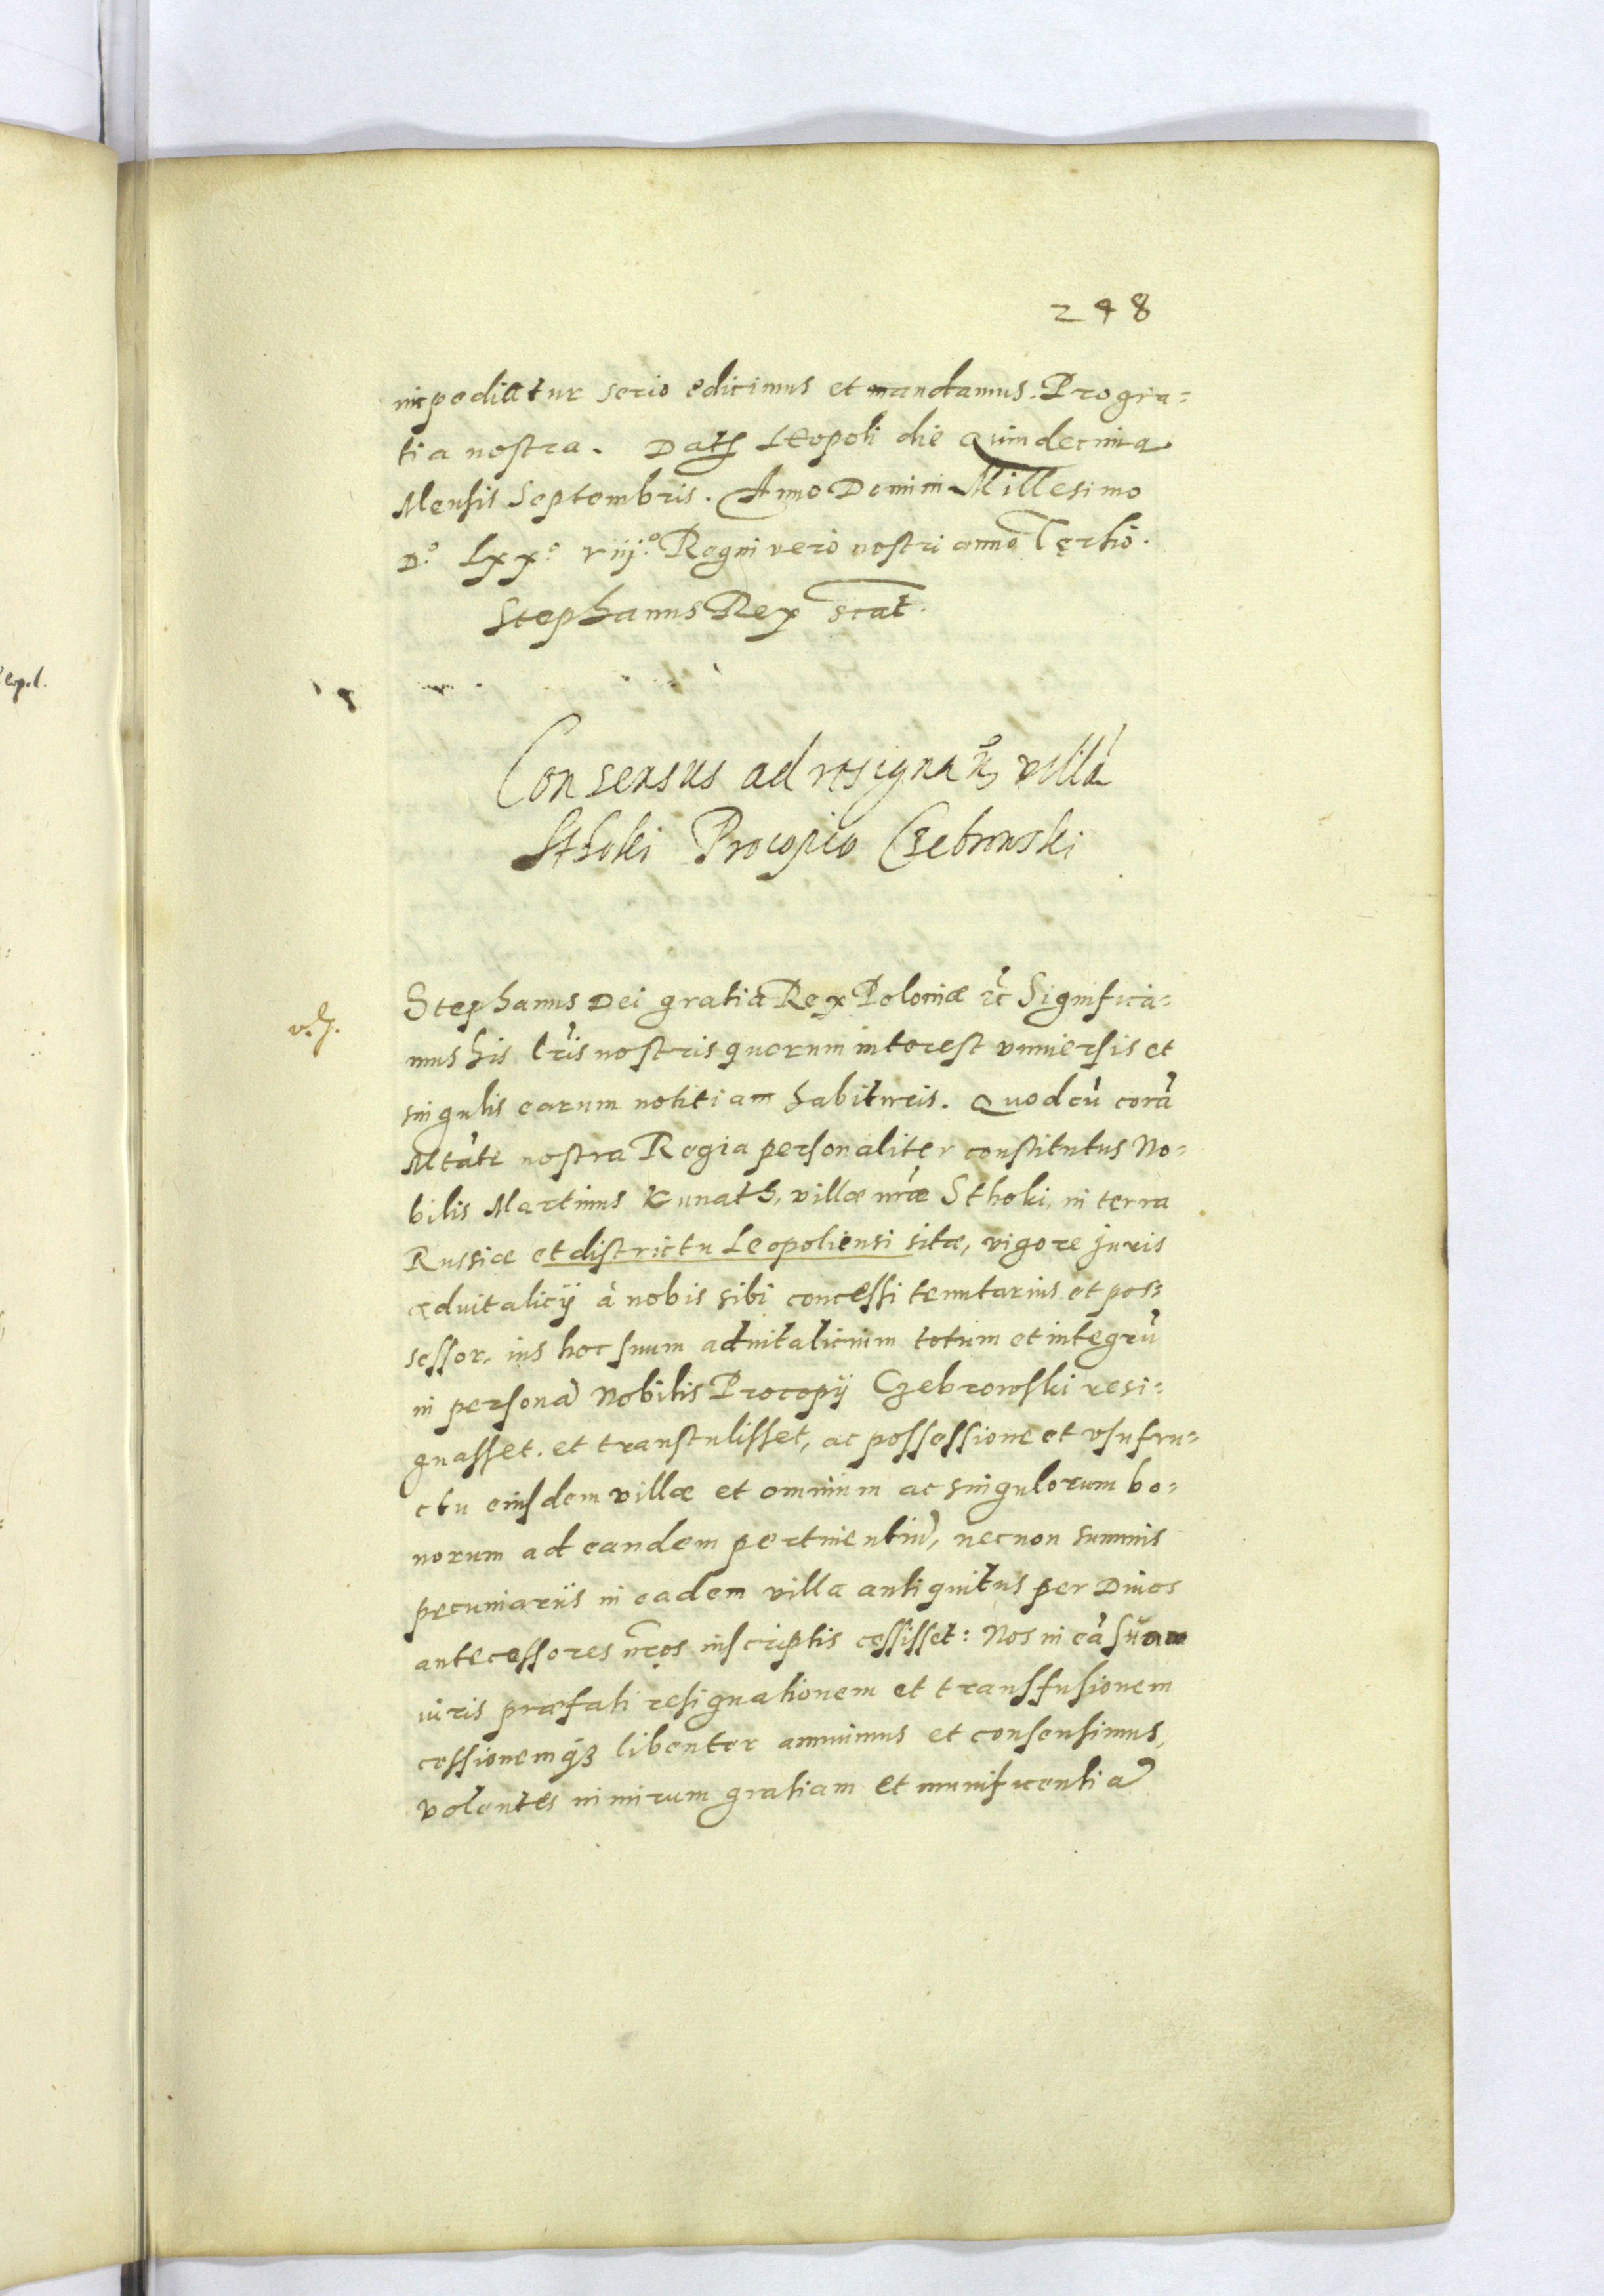 248
impediatur serio edicimus et mandamus. Pro gra=
tia nostra. Datꝭ Leopoli die Quindecima
Mensis Septembris. Anno Domini Millesimo
D.º Lxx.º viij.º Regni vero nostri anno Tertio.
Stephanus Rex scat.
Consensus ad resignan. villā
Sthoki Procopio Czebrowski
Stephanus Dei gratia Rex Poloniæ ec̃ Significa=
mus his lr̃is nostris quorum interest vniuersis et
singulis earum notitiam habituris. Quod cũ corã
Mtãte nostra Regia personaliter constitutus No=
bilis Martinus Kunath, villæ nr̃æ Sthoki, in terra
Russiæ et districtu Leopoliensi sitæ, vigore juris
aduitalicij à nobis sibi concessi tenutarius et pos=
sessor, ius hoc suum aduitalicium totum et integrũ
in personã Nobilis Procopij Czebrowski resi=
gnasset et transtulisset, ac possessione et vsufru=
ctu eiusdem villæ et omnium ac singulorum bo=
norum ad eandem pertinentiũ, necnon summis
pecuniarijs in eadem villa antiquitus per Diuos
antecessores nr̃os inscriptis cessisset: Nos in eã suam
iuris præfati resignationem et transfusionem
cessionemq̃ȝ libenter annuimus et consensimus,
volentes nimirum gratiam et munificentiã